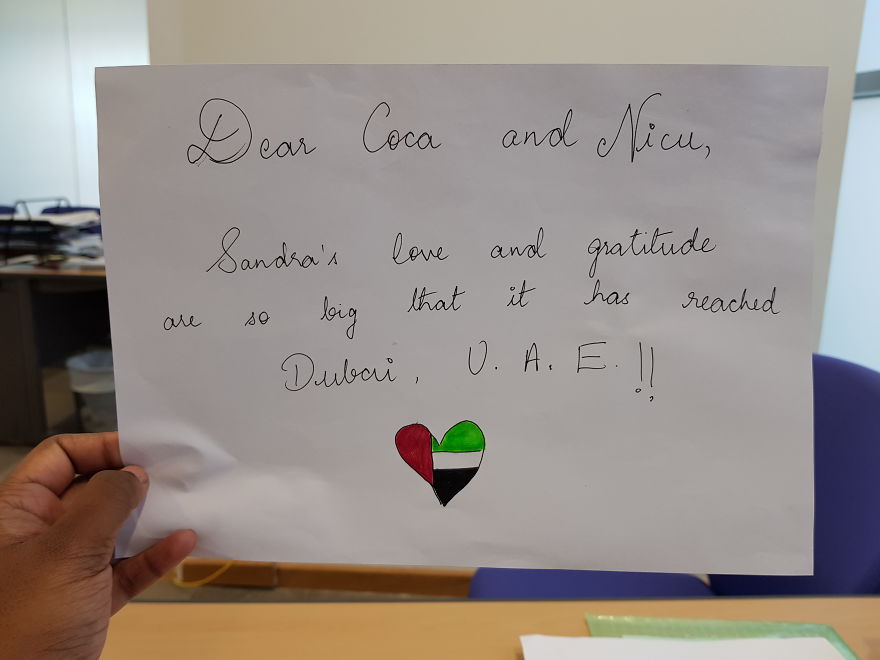 Dear Coca and Nicu,
Sandra's love and gratitude
are so big that it has reached
Dubai, U.A.E.!!